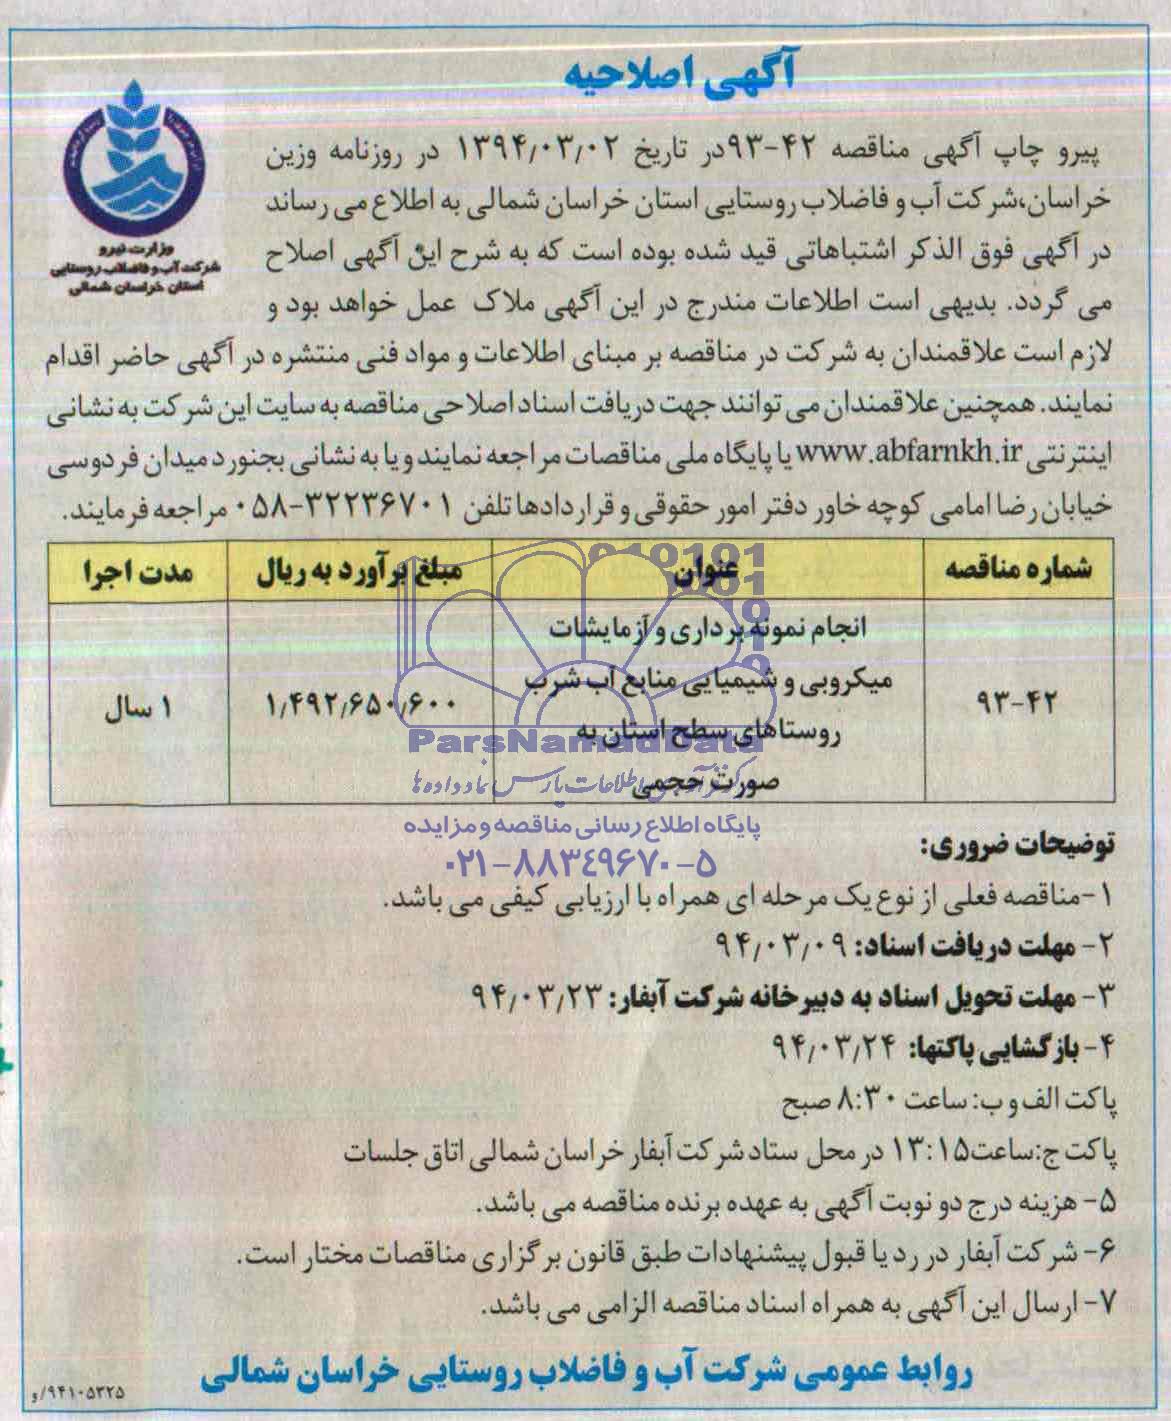 آگهی اصلاحیه
وزارت نیرو
شرکت آب و فاضلاب روستایی
استان خراسان شمالی
پیرو چاپ آگهی مناقصه ۴۲-۹۳در تاریخ ۱۳۹۴٫۰۳٫۰۲ در روزنامه وزین
خراسان،شرکت آب و فاضلاب روستایی استان خراسان شمالی به اطلاع می رساند
در آگهی فوق الذکر اشتباهاتی قید شده بوده است که به شرح این آگهی اصلاح
می گردد. بدیهی است اطلاعات مندرج در این آگهی ملاک عمل خواهد بود و
لازم است علاقمندان به شرکت در مناقصه بر مبنای اطلاعات و مواد فنی منتشره در آگهی حاضر اقدام
نمایند. همچنین علاقمندان می توانند جهت دریافت اسناد اصلاحی مناقصه به سایت این شرکت به نشانی
اینترنتی www.abfarnkh.ir یا پایگاه ملی مناقصات مراجعه نمایند و یا به نشانی بجنورد میدان فردوسی
خیابان رضا امامی کوچه خاور دفتر امور حقوقی و قراردادها تلفن ۳۲۲۳۶۷۰۱-۰۵۸ مراجعه فرمایند.
شماره مناقصه عنوان مبلغ برآورد به ریال مدت اجرا
انجام نمونه برداری و آزمایشات
میکروبی و شیمیایی منابع آب شرب
روستاهای سطح استان به
صورت حجمی
۹۳-۴۲ ۱٫۴۹۲٫۶۵۰٫۶۰۰ ۱ سال
ParsNamadData
مرکز آمار و اطلاعات پارس نماد داده ها
پایگاه اطلاع رسانی مناقصه و مزایده
۰۲۱-۸۸۳۴۹۶۷۰-۵
توضیحات ضروری:
۱-مناقصه فعلی از نوع یک مرحله ای همراه با ارزیابی کیفی می باشد.
۲- مهلت دریافت اسناد: ۹۴٫۰۳٫۰۹
۳- مهلت تحویل اسناد به دبیرخانه شرکت آبفار: ۹۴٫۰۳٫۲۳
۴- بازگشایی پاکتها: ۹۴٫۰۳٫۲۴
پاکت الف و ب: ساعت ۸:۳۰ صبح
پاکت ج:ساعت۱۳:۱۵ در محل ستاد شرکت آبفار خراسان شمالی اتاق جلسات
۵- هزینه درج دو نوبت آگهی به عهده برنده مناقصه می باشد.
۶- شرکت آبفار در رد یا قبول پیشنهادات طبق قانون برگزاری مناقصات مختار است.
۷- ارسال این آگهی به همراه اسناد مناقصه الزامی می باشد.
روابط عمومی شرکت آب و فاضلاب روستایی خراسان شمالی
۹۴۱۰۵۳۲۵/و